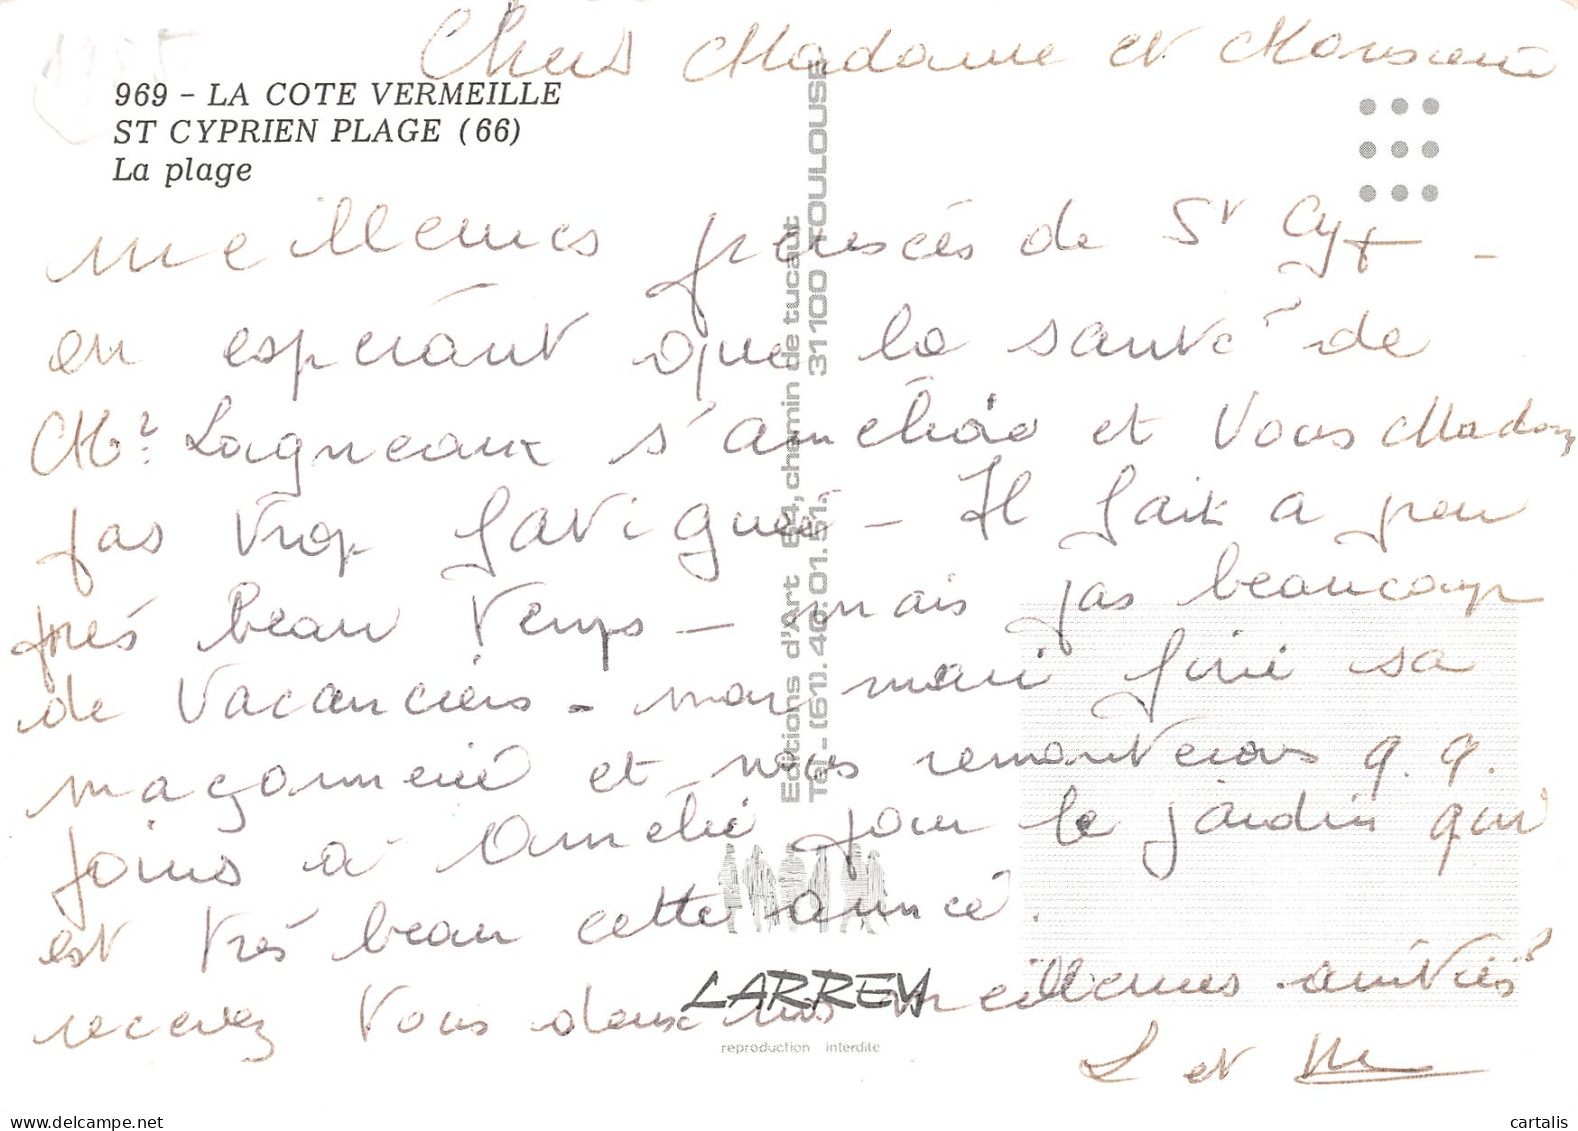 Chers Madame et Monsieur
969 - LA COTE VERMEILLE
ST CYPRIEN PLAGE (66)
La plage
meilleures pensées de St Cyp -
en espérant que la santé de
Mr. Lagneaux s'améliore et Vous Madame
pas trop fatiguée - Il fait a peu
près beau temps - mais pas beaucoup
de vacanciers - mon mari finit sa
maçonnerie et nous remonterons q.q.
jours à pour le jardin qui
est très beau cette année.
recevez Vous deux nos meilleures amitiés
L et M
Editions d'Art 64, chemin de tucaut
Tél - (61). 40.01.51. 31100 TOULOUSE
LARREY
reproduction interdite
delcampe.net
cartalis